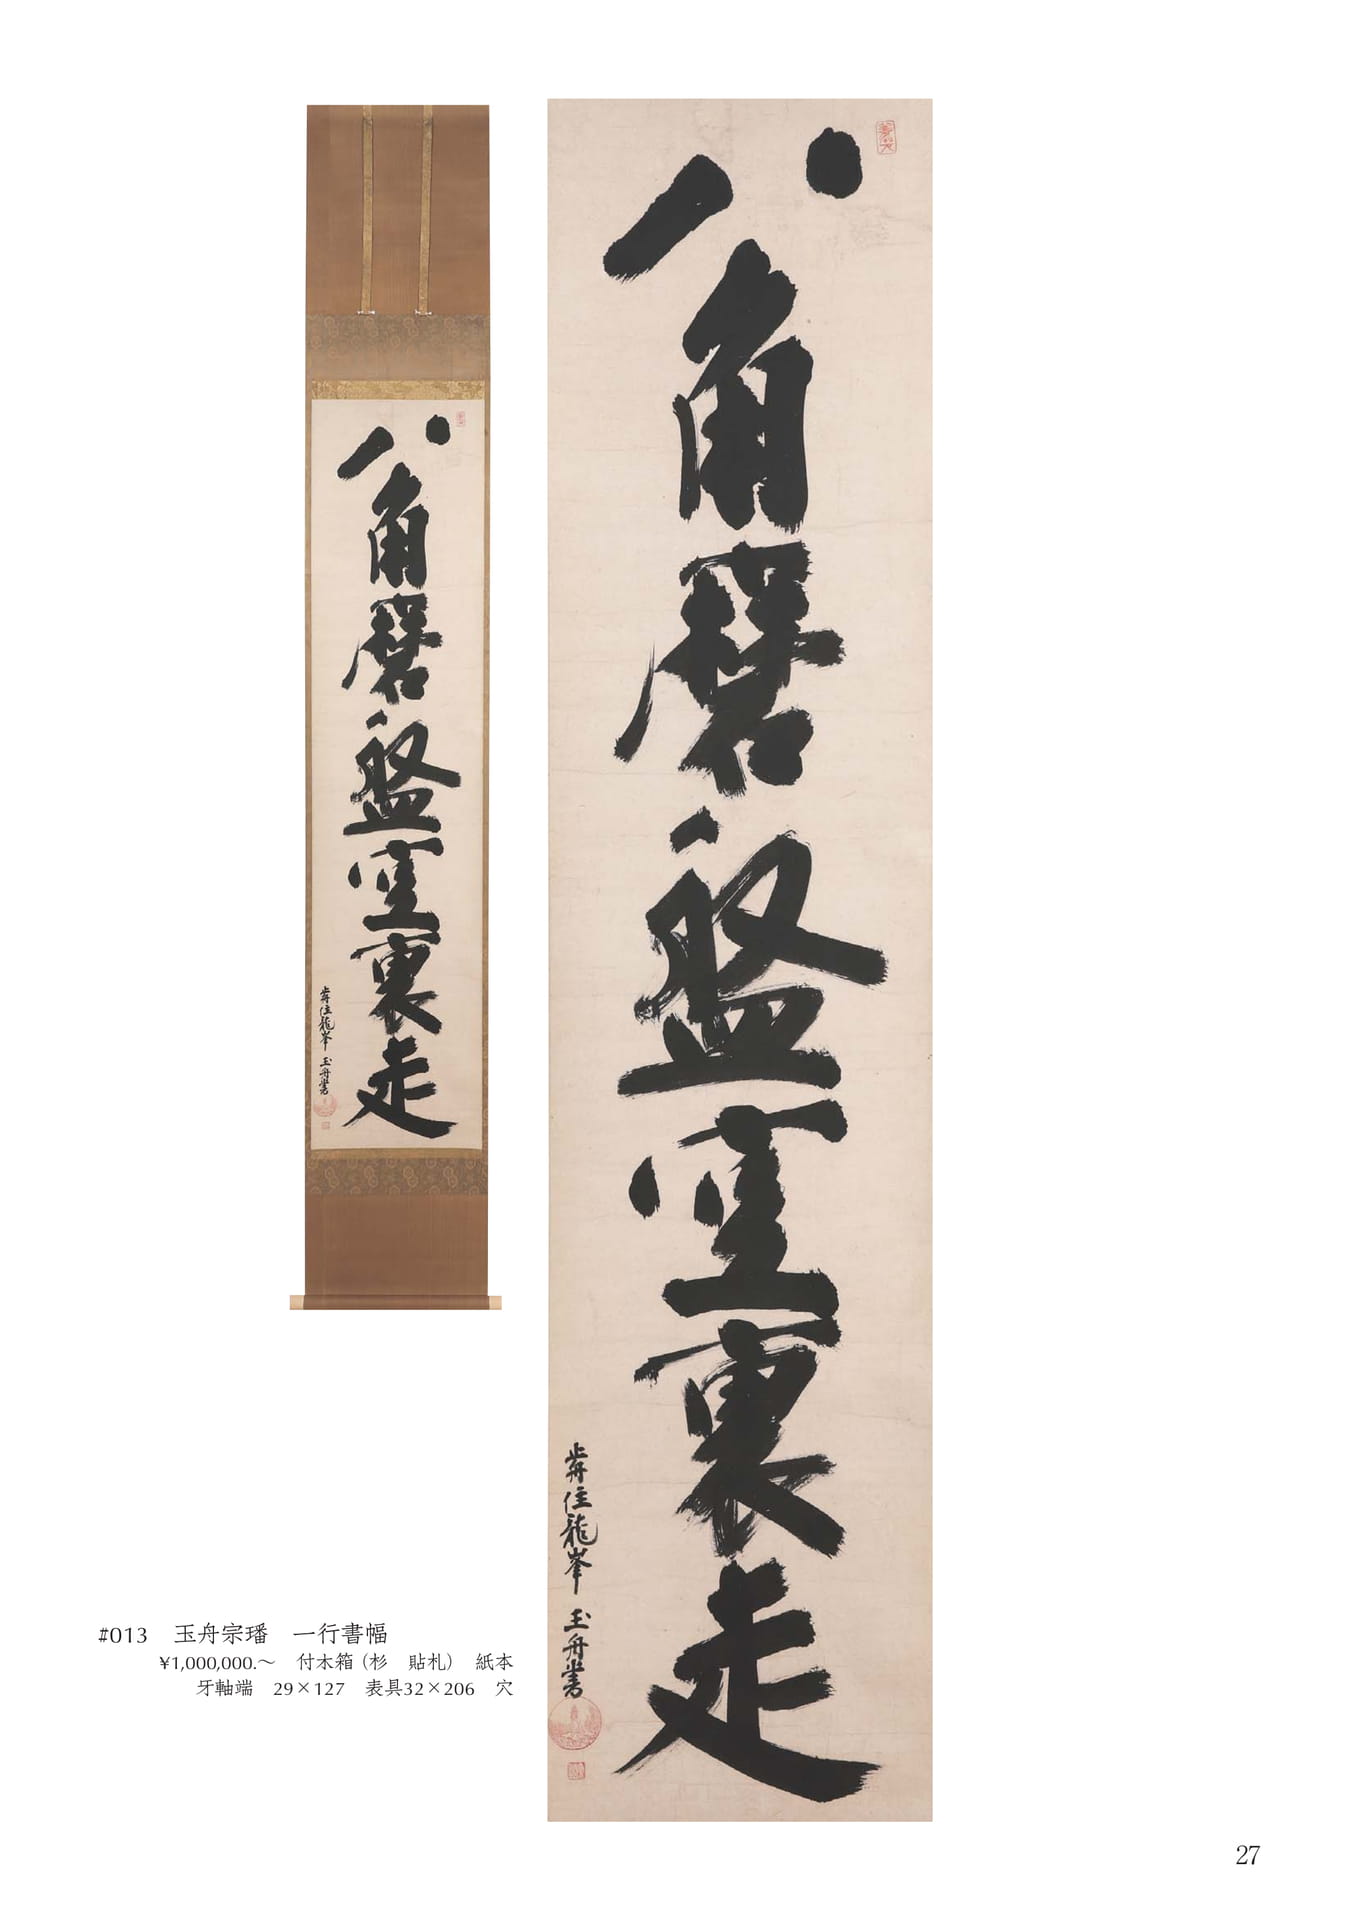 八角磨盤空裏走
前住龍峯 玉舟書
八角磨盤空裏走
前住龍峯 玉舟書
#013 玉舟宗璠 一行書幅
¥1,000,000.～ 付木箱（杉 貼札） 紙本
牙軸端 29×127 表具32×206 穴
27